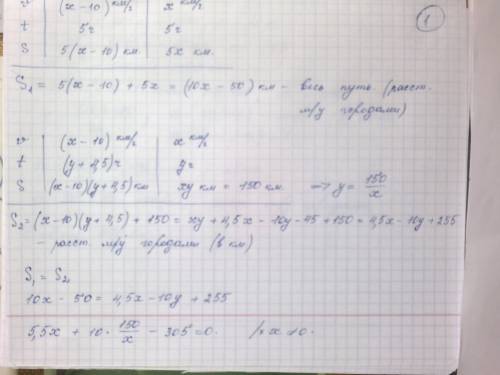 1
v | (x-10) км/ч | x км/ч
t | 5ч | 5ч
S | 5(x-10) км. | 5x км.
S₁ = 5(x-10) + 5x = (10x - 50) км - весь путь. (расст.
м/у городами)
v | (x-10) км/ч | x км/ч
t | (y+4,5)ч | yч
S | (x-10)(y+4,5) км | xy км = 150 км. => y = 150/x
S₂ = (x-10)(y+4,5) + 150 = xy + 4,5x - 10y - 45 + 150 = 4,5x - 10y + 255
- расст. м/у городами (в км)
S₁ = S₂
10x - 50 = 4,5x - 10y + 255
5,5x + 10 · 150/x - 305 = 0. /·x ≠ 0.